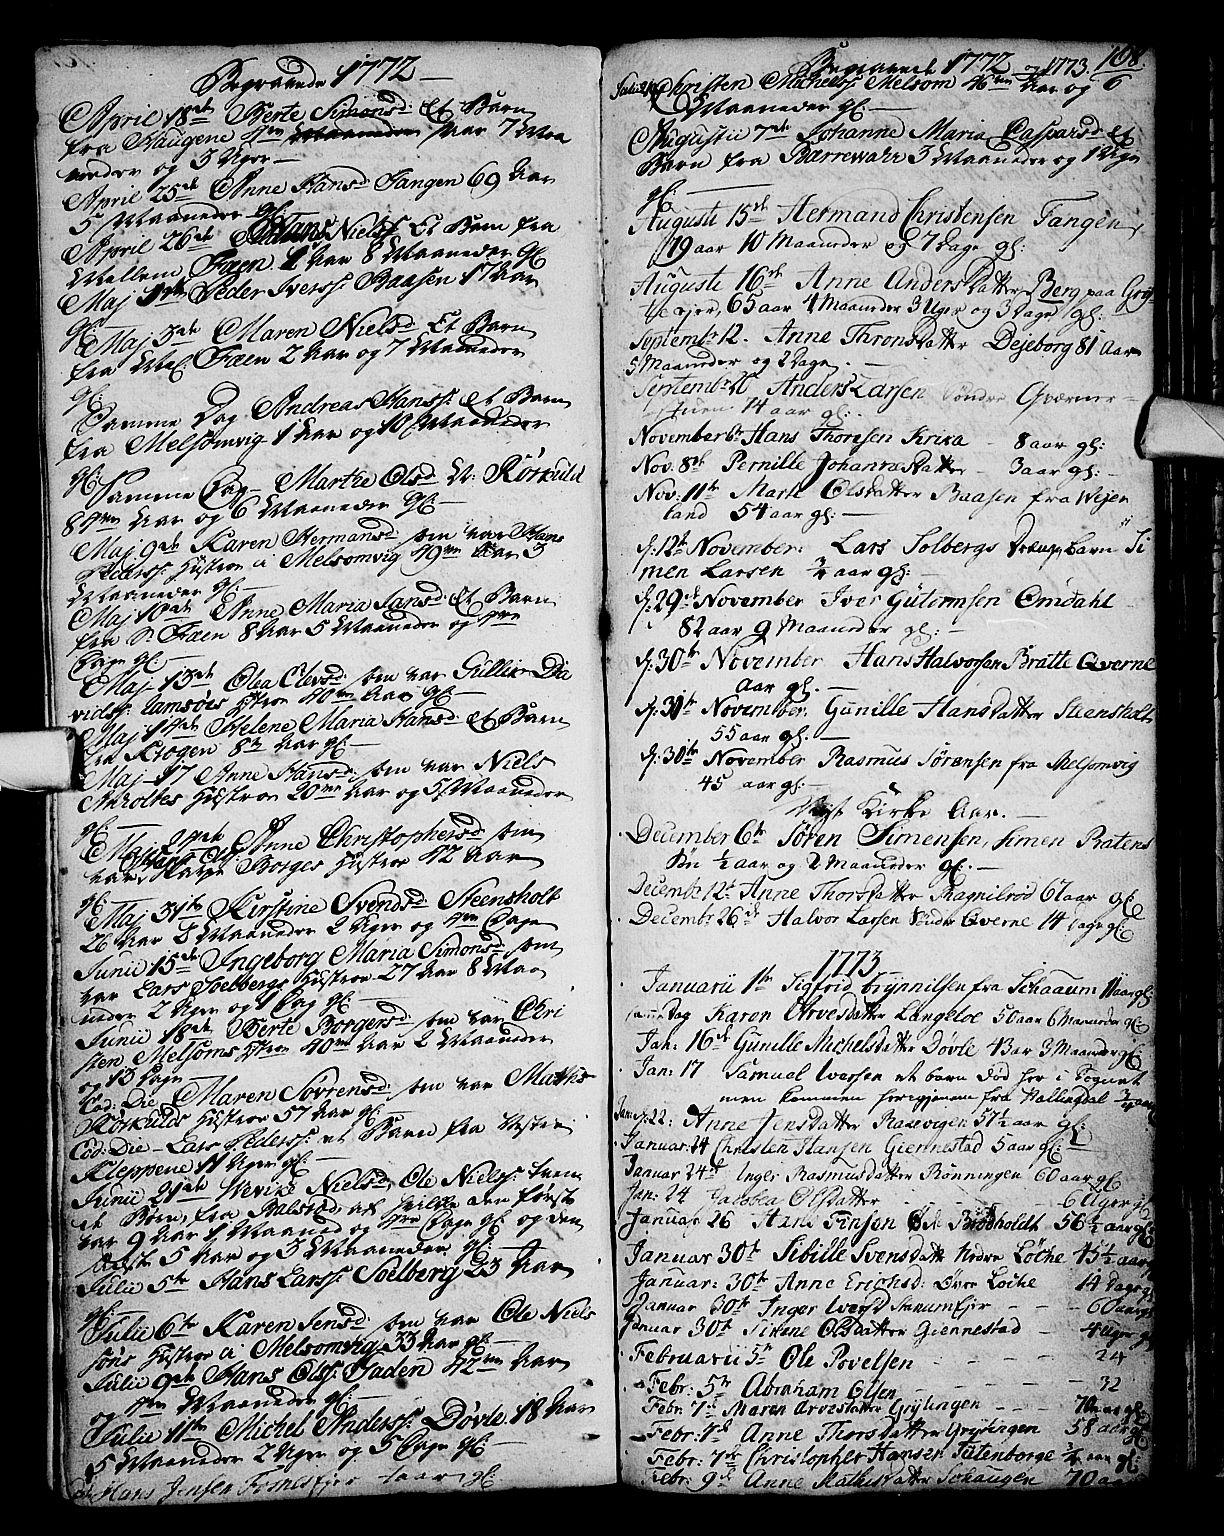 Begravede 1772 —
April 18de Berte Simonsd: Et Barn
fra Haugene Aar 7 Maa
neder og 3 Uger —
April 25de Anne Hansd Tangen 69 Aar
5 Maaneder gl: —
April 26de Hans Niels: Et Barn fra
Mellem Fæen 1 Aar 8 Maaneder gl:
Maj Peder Iverss: Baasen 17 Aar
gl: —
Maj 3de Maren Nielsd Et Barn
fra Mel: Fæen 2 Aar og 7 Maaneder
gl: —
Samme Dag Andreas Hanss: et Barn
fra Melsomvig 1 Aar og 10 Maaneder
gl: —
Samme Dag — Marthe Olsd Rørkuld
8 Aar og 6 Maaneder gl: —
Maj 9de Karen Hermansd som var Hans
Pederss: Hustroe i Melsomvig 49 Aar 3
Maaneder gl: —
Maj 10de Anne Maria Hansd Et Barn
fra Fæen 8 Aar 5 Maaneder og
Dage gl: —
Maj 13de Olea Olevsd: som var Gullik Da
vids: Lamsøes Hustroe 40 Aar gl: —
Maj 14de Helene Maria Hansd et Barn
fra Krogen 8 Aar gl: —
Maj 17 Anne Hansd: som var Niels
Hustroe 20 Aar og 5 Maaneder
gl: —
Maj 24de Anne Christophersd: som
var Hans Ols: Borges Hustroe 42 Aar
gl: —
Maj 31te Kirstine Svendsd Steensholt
26 Aar 8 Maaneder 2 Uger og Dage
Junii 15de Ingeborg Maria Simonsd som
var Lars Soelbergs Hustroe 27 Aar 8 Maa
neder 2 Uger og 1 Dag gl: —
Junii 18de Berte Borgersd: som var Chri
sten Melsoms Hustroe 40 Aar 2 Maaneder
og 13 Dage
Eod: Die Maren Sørrensd: som var Mathis
Rørkulds Hustroe 57 Aar gl: —
Eod: Die — Lars Pederss: et Barn fra Vestre
Kleppene 11 Uger gl: —
Junii 21de Wevike Nielsd, Ole Nielss: tvende
Børn, fra Palstød af hvilke den første
var 9 Aar 1 Maaned og Dage gl: og den
anden 5 Aar og 3 Maaneder gl: —
Julii 5te Hans Larss: Soelberg 23 Aar
gl: —
Julii 6te Karen Jensd: som var Ole Niels
søns Hustroe i Melsomvig 33 Aar gl: —
Julii 9de Hans Olss: Jaden 42 Aar
og Maaneder gl: —
Julii 11te Michel Anderss: Døvle 18 Aar
5 Maaneder 2 Uger og 5 Dage gl: —
Hans Jensen aar gl:
Begravede 1772 og 1773. 168.
Christen Mathiess: Melsom 46 Aar og 6
Maaneder gl: —
Augustii 7de Johanne Maria Caspersd et
Barn fra Bærrevahr 3 Maaneder og 1 Uge
gl: —
Augusti 15de Hermand Christensen Tangen
19 aar 10 Maaneder og 7 dage gl: —
Augusti 16de Anne Anders Datter Berg paa Grøf
tie ejer, 65 aar 4 Maaneder 3 Uger og 3 Dage gl: —
September 12. Anne Thronsdatter Dejeborg 81 Aar
5 Maaneder og 2 Dage —
September Anders Larsen Søndre Gværner —
tuen 14 aar gl: —
November Hans Thoresen Krika — 8 aar gl: —
Nov: 8de Pernille Johannesdatter — 3 aar gl: —
Nov: 11te Marte Olsdatter Baasen fra Wejer
land 54 aar gl: —
d: 12te November: Lars Solbergs Barn Si
men Larsen ¾ aar gl: —
d: 29de November Iver Gutormsen Omdahl —
82 aar 9 Maaneder gl: —
d: 30te November Hans Halvorsen Bratte Qverne
aar gl: —
d: 30te November: Gunille Hansdatter Steensholt
55 aar gl: —
d: 30te November Rasmus Sørensen fra Melsomvig
45 aar gl: —
Nyt Kirke Aar. —
December 6te Søren Simensen, Simen Ratens
Søn ½ aar og 2 Maaneder gl: —
Decembr: 12te Anne Thorsdatter Ramnilrød 67 aar gl:
Decembr: 26de Halvor Larsen Søndre Qverne 14 dage gl:
1773
Januarii 1te Sigfrid Brynnilsen fra Schaaum 11 aar gl:
samme Dag Karen Arvesdatter Langeloe 50 aar 6 Maaneder gl:
Jan: 16de Gunille Michelsdatter Dovle 43 ar 3 Maaneder gl:
Jan: 17 Samuel Iversen et barn død her i Sognet
men kommen herigjenem fra Hallingdal ¾ aar
Jan: 22: Anne Jensdatter Raasevigen 57½ aar gl:
Januar: 24 Christen Hansen Giennestad 5 aar gl: —
Januar 24de Inger Rasmusdatter Rønningen 60 aar gl:
Jan: 24 Jacobea Olsdatter — — — 6 Uger gl:
Januar 26 Hans Finsen Brodholdt 56½ aar gl:
Januar 30te Sibille Svensdatter Nedre Løche 45½ aar gl:
Januar: 30te Anne Erichsd: Øver Løche 14 Dage gl:
Januar 30te Inger Iversd — — 60 aar gl:
Januar 30te Sirene Olsdatter Giennestad — 4 Uger gl:
Februarii 5te Ole Povelsen — — — 24
Febr: 5te Abraham Olsen — — — 32
Febr: 7de Maren Arvesdatter Grytingen — 70 aar gl:
Febr: 7de Anne Thorsdatter Grytingen 58 aar gl:
Febr: 7de Christopher Hansen Tutenborge ¾ aar gl:
Febr: 9de Anne Mathisdatter Schaugen 70 aar